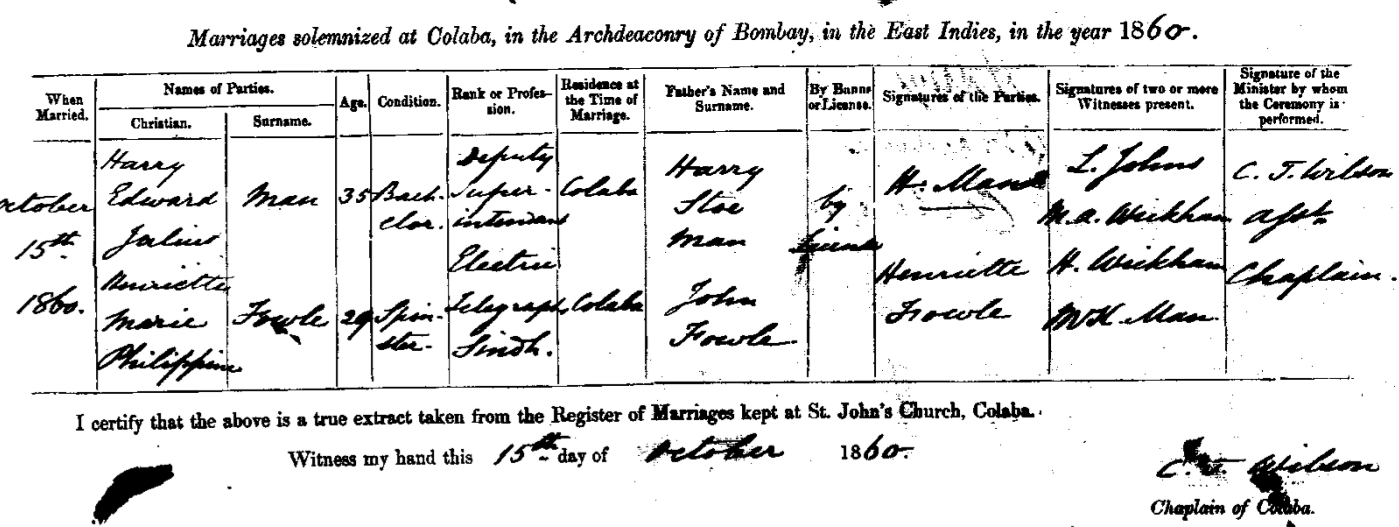 Marriages solemnized at Colaba, in the Archdeaconry of Bombay, in the East Indies, in the year 1860.
When Married.
Names of Parties.
Christian.
Surname.
Age.
Condition.
Rank or Profession.
Residence at the Time of Marriage.
Father's Name and Surname.
By Banns or License.
Signatures of the Parties.
Signatures of two or more Witnesses present.
Signature of the Minister by whom the Ceremony is performed.
October
15th
1860.
Harry
Edward
Julius
Man
35
Bach-
elor.
Deputy
Super-
intendant
Electric
Telegraph
Sindh.
Colaba
Harry
Stoe
Man
by
License
H. Man
L. Johns
M.A. Wickham
H. Wickham
Man
C. J. Wilson
Asst
Chaplain.
Henriette
Marie
Philippine
Fowle
29
Spin-
ster.
Colaba
John
Fowle.
Henriette
Fowle
I certify that the above is a true extract taken from the Register of Marriages kept at St. John's Church, Colaba.
Witness my hand this 15th day of October 1860.
C. J. Wilson
Chaplain of Colaba.